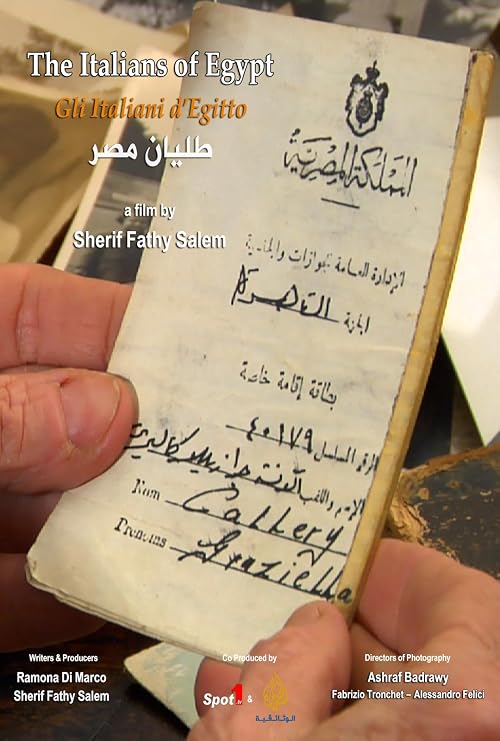 The Italians of Egypt
Gli Italiani d'Egitto
طليان مصر
a film by
Sherif Fathy Salem
المملكة المصرية
الإدارة العامة لجوازات والجنسية
الجهة القاهرة
بطاقة إقامة خاصة
الرقم المسلسل ٤٠١٧٩
الإسم واللقب
Nom Callery
Prenoms Graziella
Writers & Producers
Ramona Di Marco
Sherif Fathy Salem
Co Produced by
Spot1 &
الوثائقية
Directors of Photography
Ashraf Badrawy
Fabrizio Tronchet – Alessandro Felici